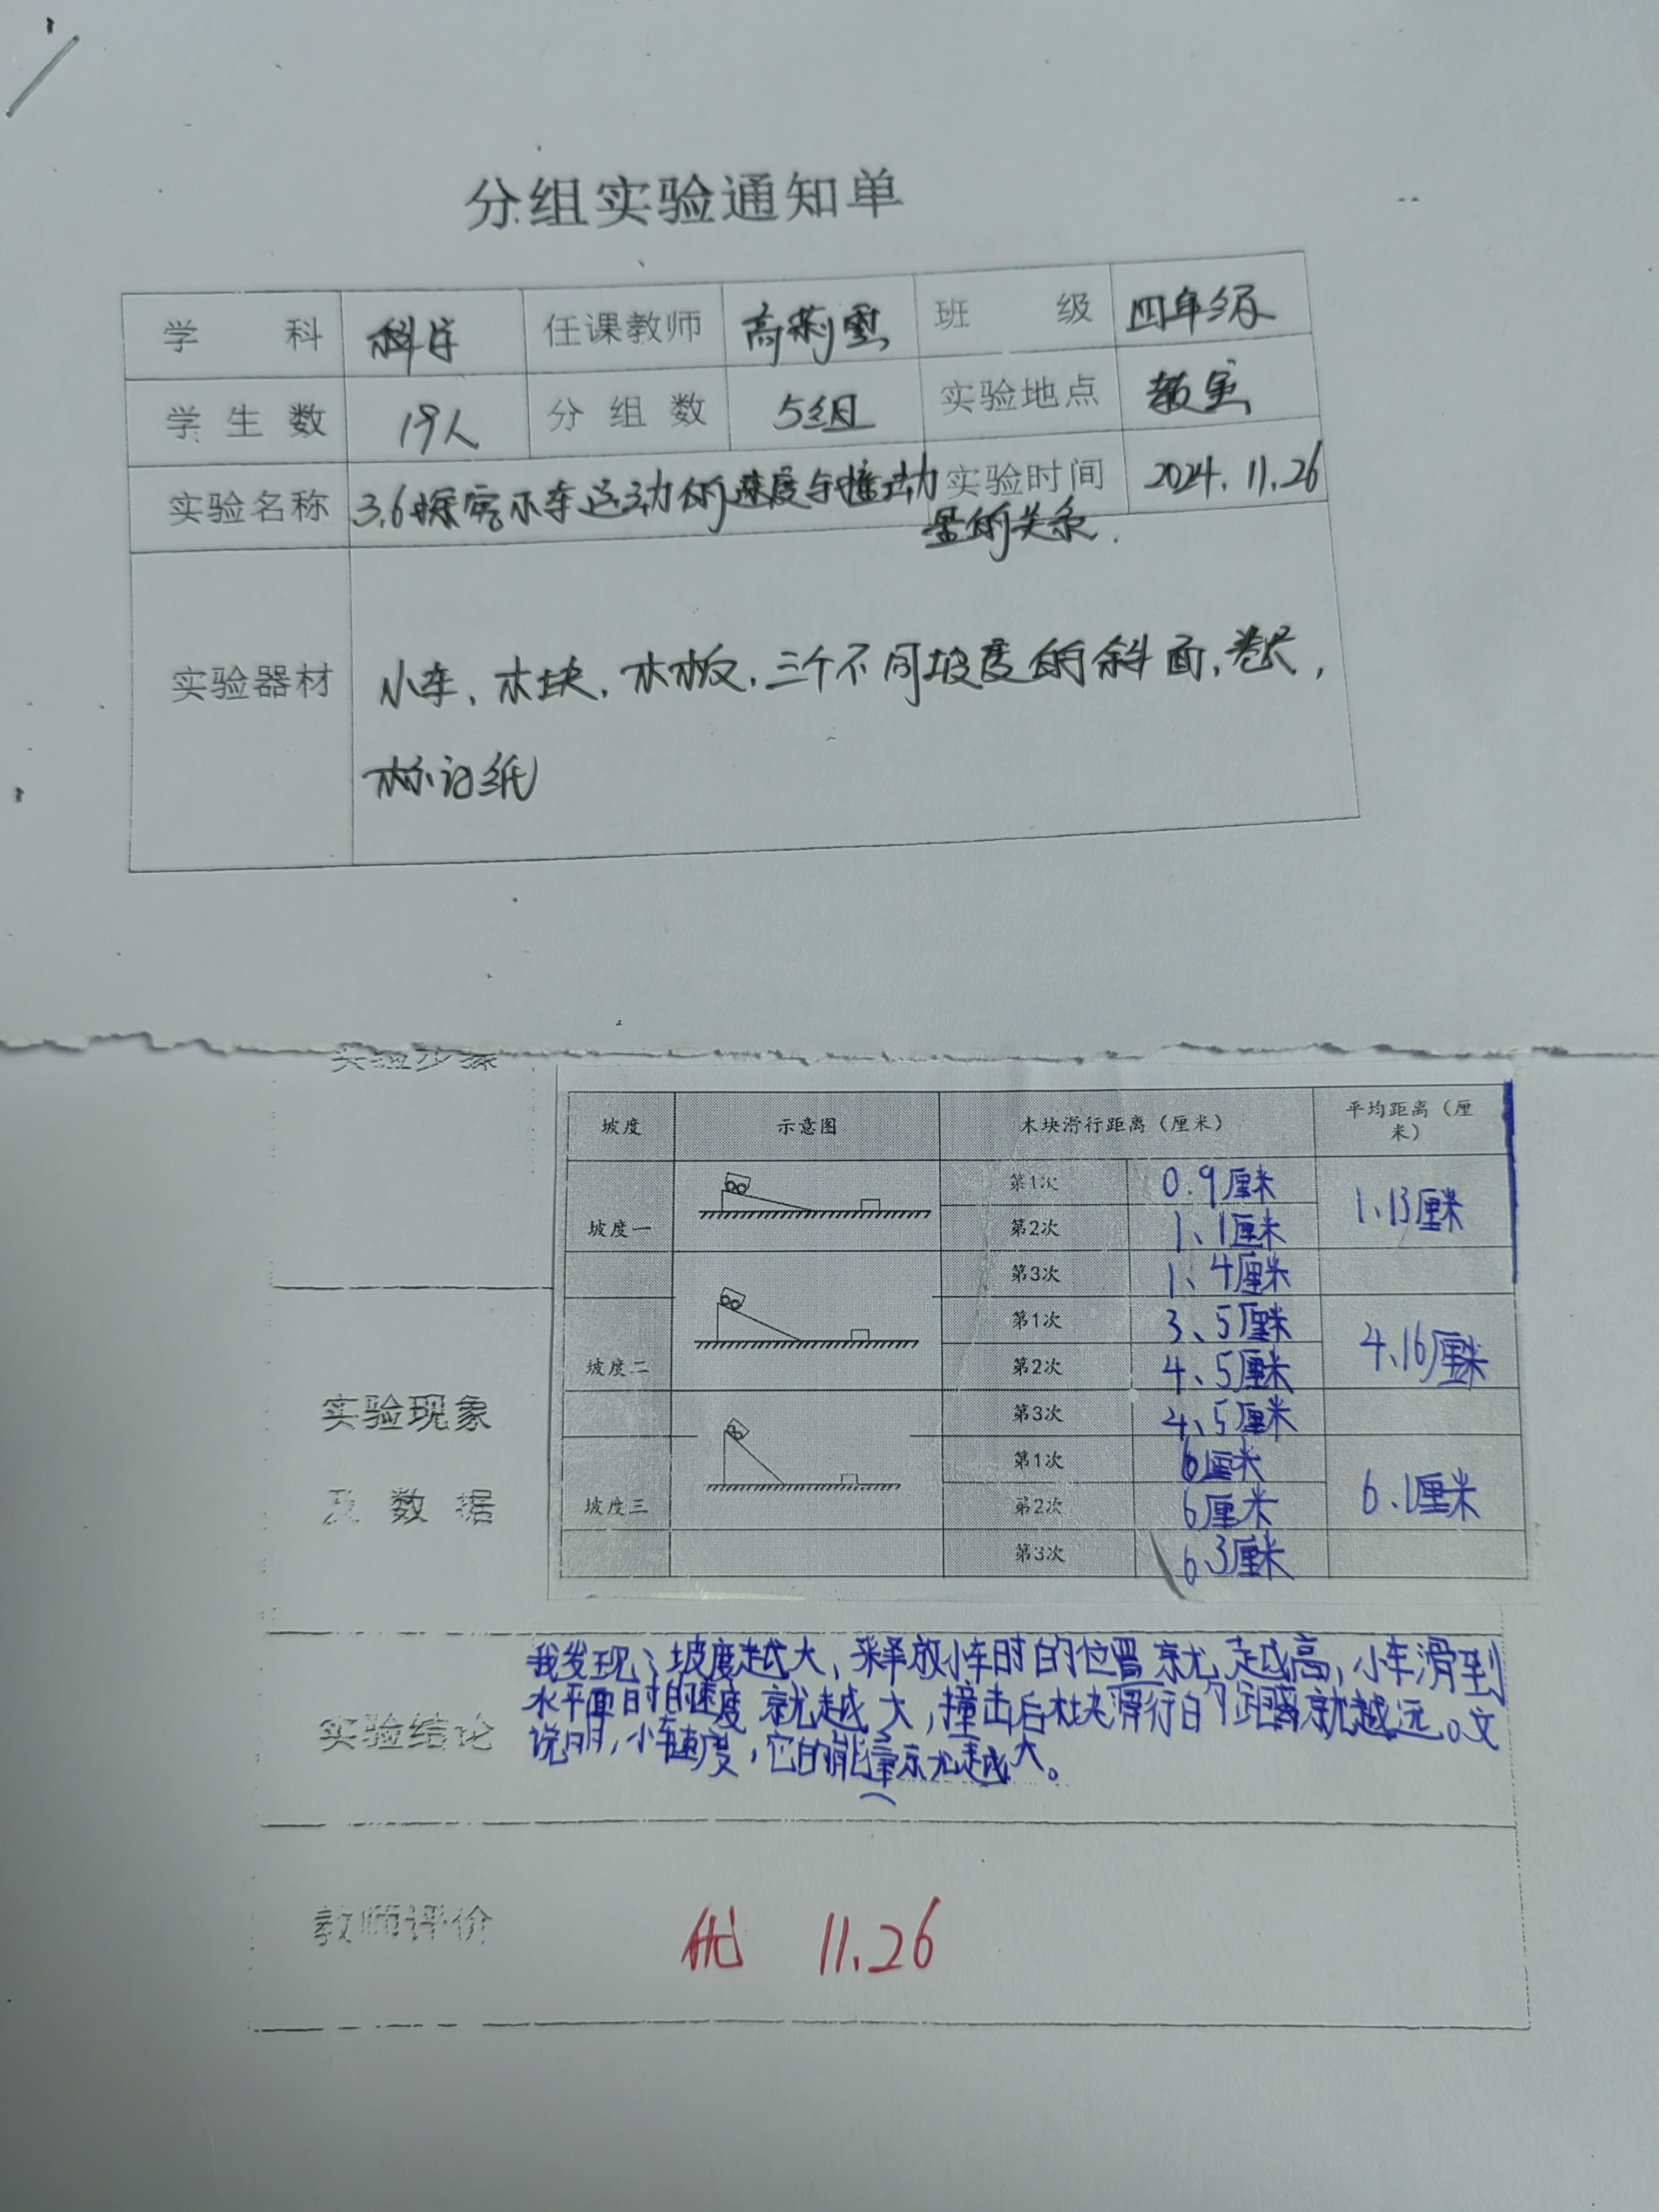 分组实验通知单
学 科 科学 任课教师 高莉 班 级 四年级
学 生 数 19人 分 组 数 5组 实验地点 教室
实验名称 3.6探究小车运动的速度与 动 实验时间 2024.11.26
量的关系.
实验器材 小车、木块、木板、三个不同坡度的斜面、卷尺,
标记纸
实验步骤
坡度 示意图 木块滑行距离（厘米） 平均距离（厘
米）
坡度一 第1次 0.9厘米 1、13厘米
第2次 1、1厘米
第3次 1、4厘米
坡度二 第1次 3、5厘米 4、16厘米
第2次 4、5厘米
第3次 4、5厘米
坡度三 第1次 6厘米 6.1厘米
第2次 6厘米
第3次 6.3厘米
实验现象
及 数 据
实验结论
我发现、坡度越大、释放小车时的位置就越高，小车滑到
水平面时的速度就越大，撞击后木块滑行的距离就越远。
说明，小车速度，它的能量就越大。
教师评价 优 11.26